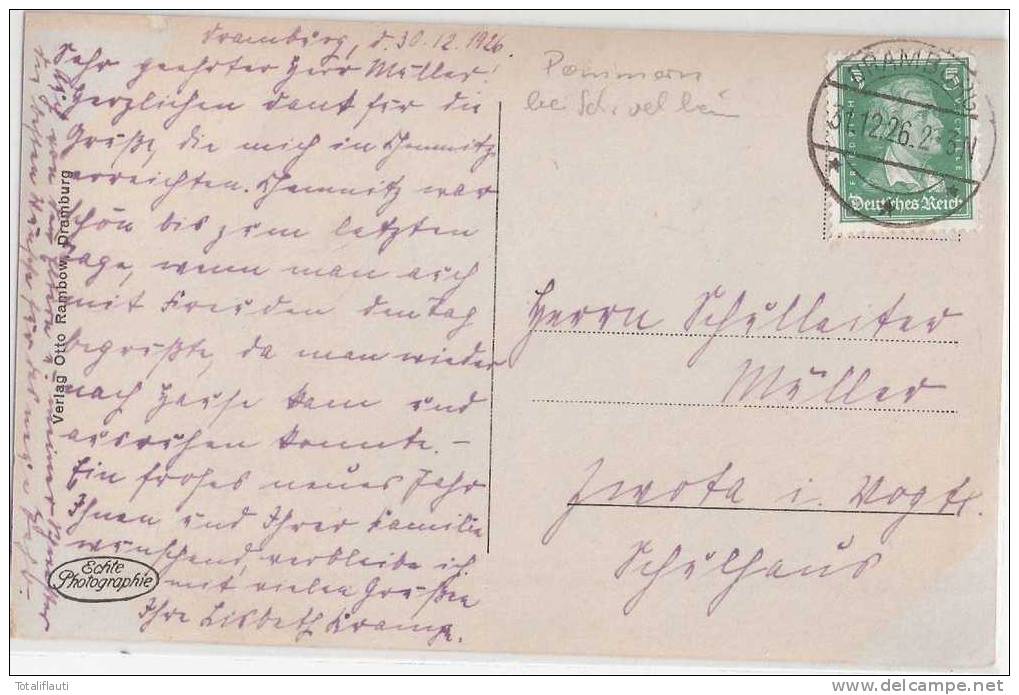 Dramburg, d. 30.12.1926.
Sehr geehrter Herr Müller!
Herzlichen Dank für die
Grüße, die mich in Chemnitz
erreichten. Chemnitz war
schön bis zum letzten
Tage, wenn man auch
mit Freuden den Tag
begrüßte, da man wieder
nach Hause kam und
ausruhen konnte. –
Ein frohes neues Jahr
Ihnen und Ihrer Familie
wünschend, verbleibe ich
mit vielen Grüßen
Ihre Lisbeth
Verlag Otto Rambow, Dramburg
Echte
Photographie
Pommern
bei Schivelbein
DRAMBURG
31.12.26.2-3N
FRIEDRICH
Deutsches Reich
Herrn Schulleiter
Müller
Zwota i. Vogtl.
Schulhaus
Totaliflauti
delcampe.net